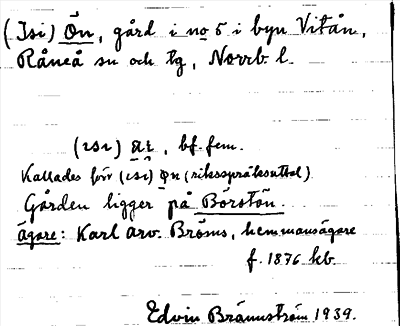 (Isi) Ön, gård i no 5 i byn Vitån,
Råneå sn och tg, Norrb. l.
(ısı) , bf. fem.
Kallades förr (ısı) (riksspråksuttal).
Gården ligger på Börstön.
Ägare: Karl Arv. Bröms, hemmansägare
f. 1876 kb.
Edvin Brännström 1939.